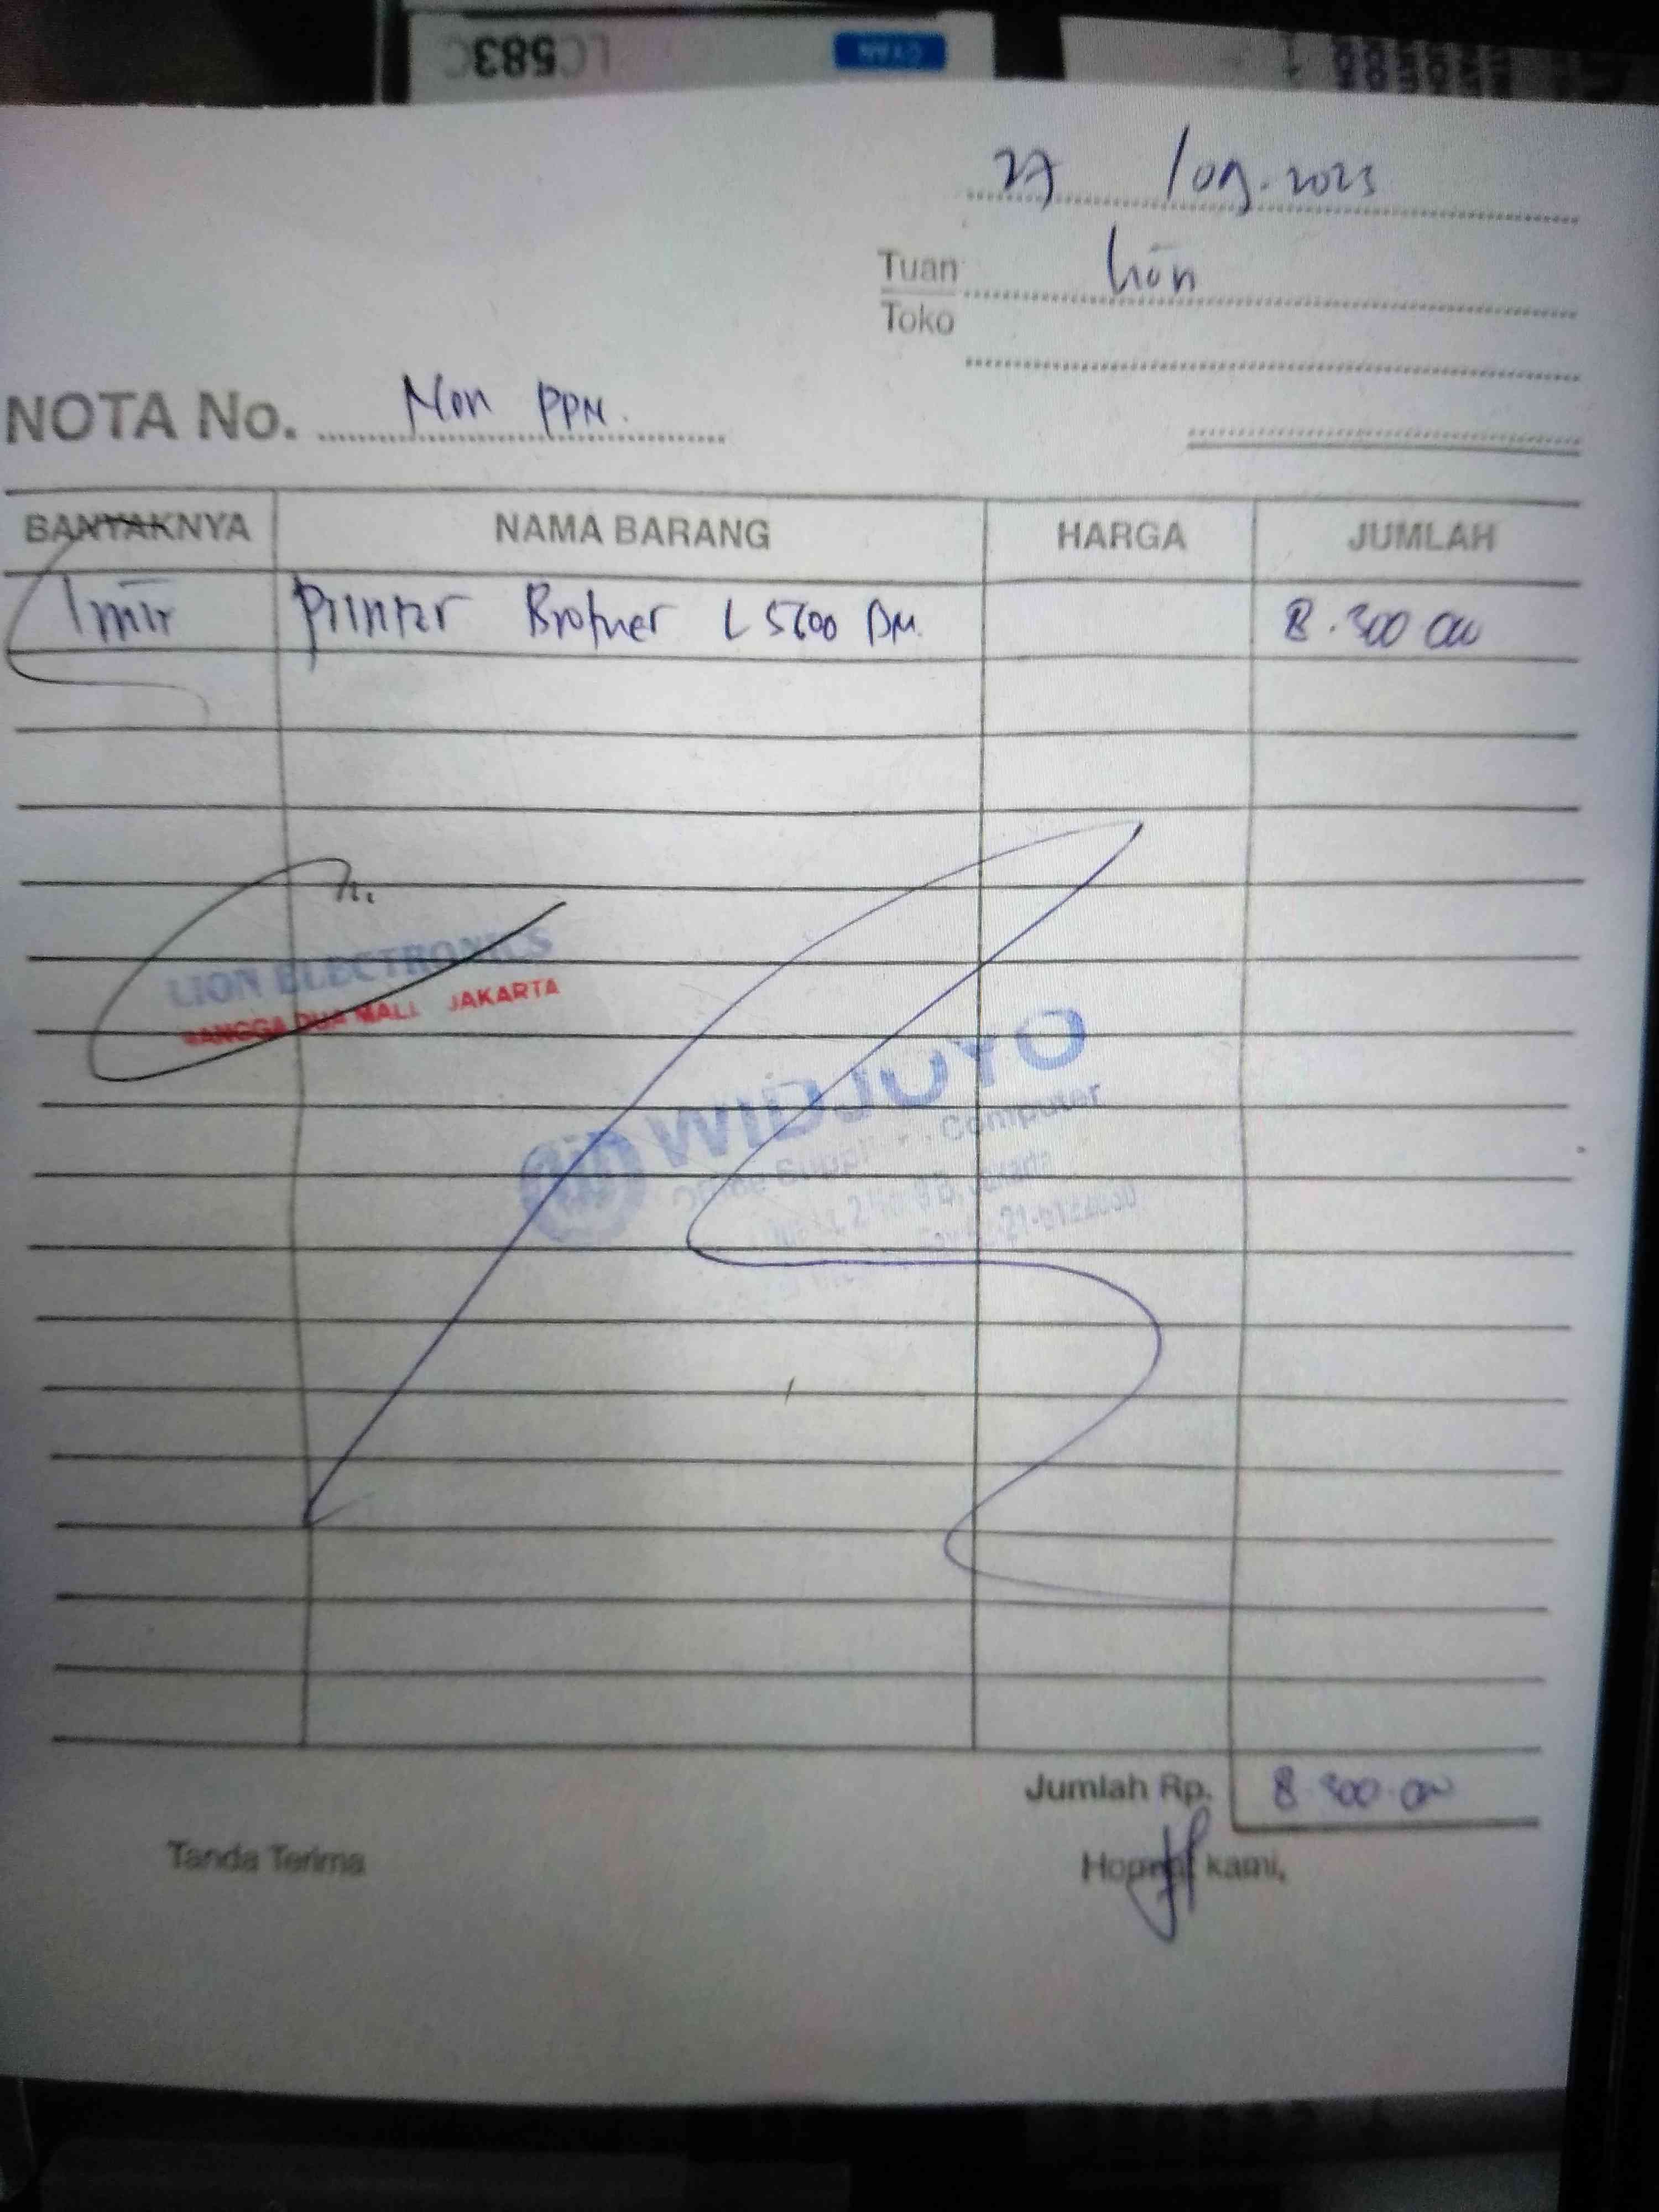 LC583C
CYAN
27 /09.2023
Tuan Lion
Toko
NOTA No. Non PPN.
BANYAKNYA NAMA BARANG HARGA JUMLAH
1 Printer Brother L 5600 DN. 8.300 000
LION ELECTRONICS
MANGGA DUA MALL JAKARTA
WIDJOYO
Office Supplier Computer
Jumlah Rp. 8.300.000
Tanda Terima Hormat kami,